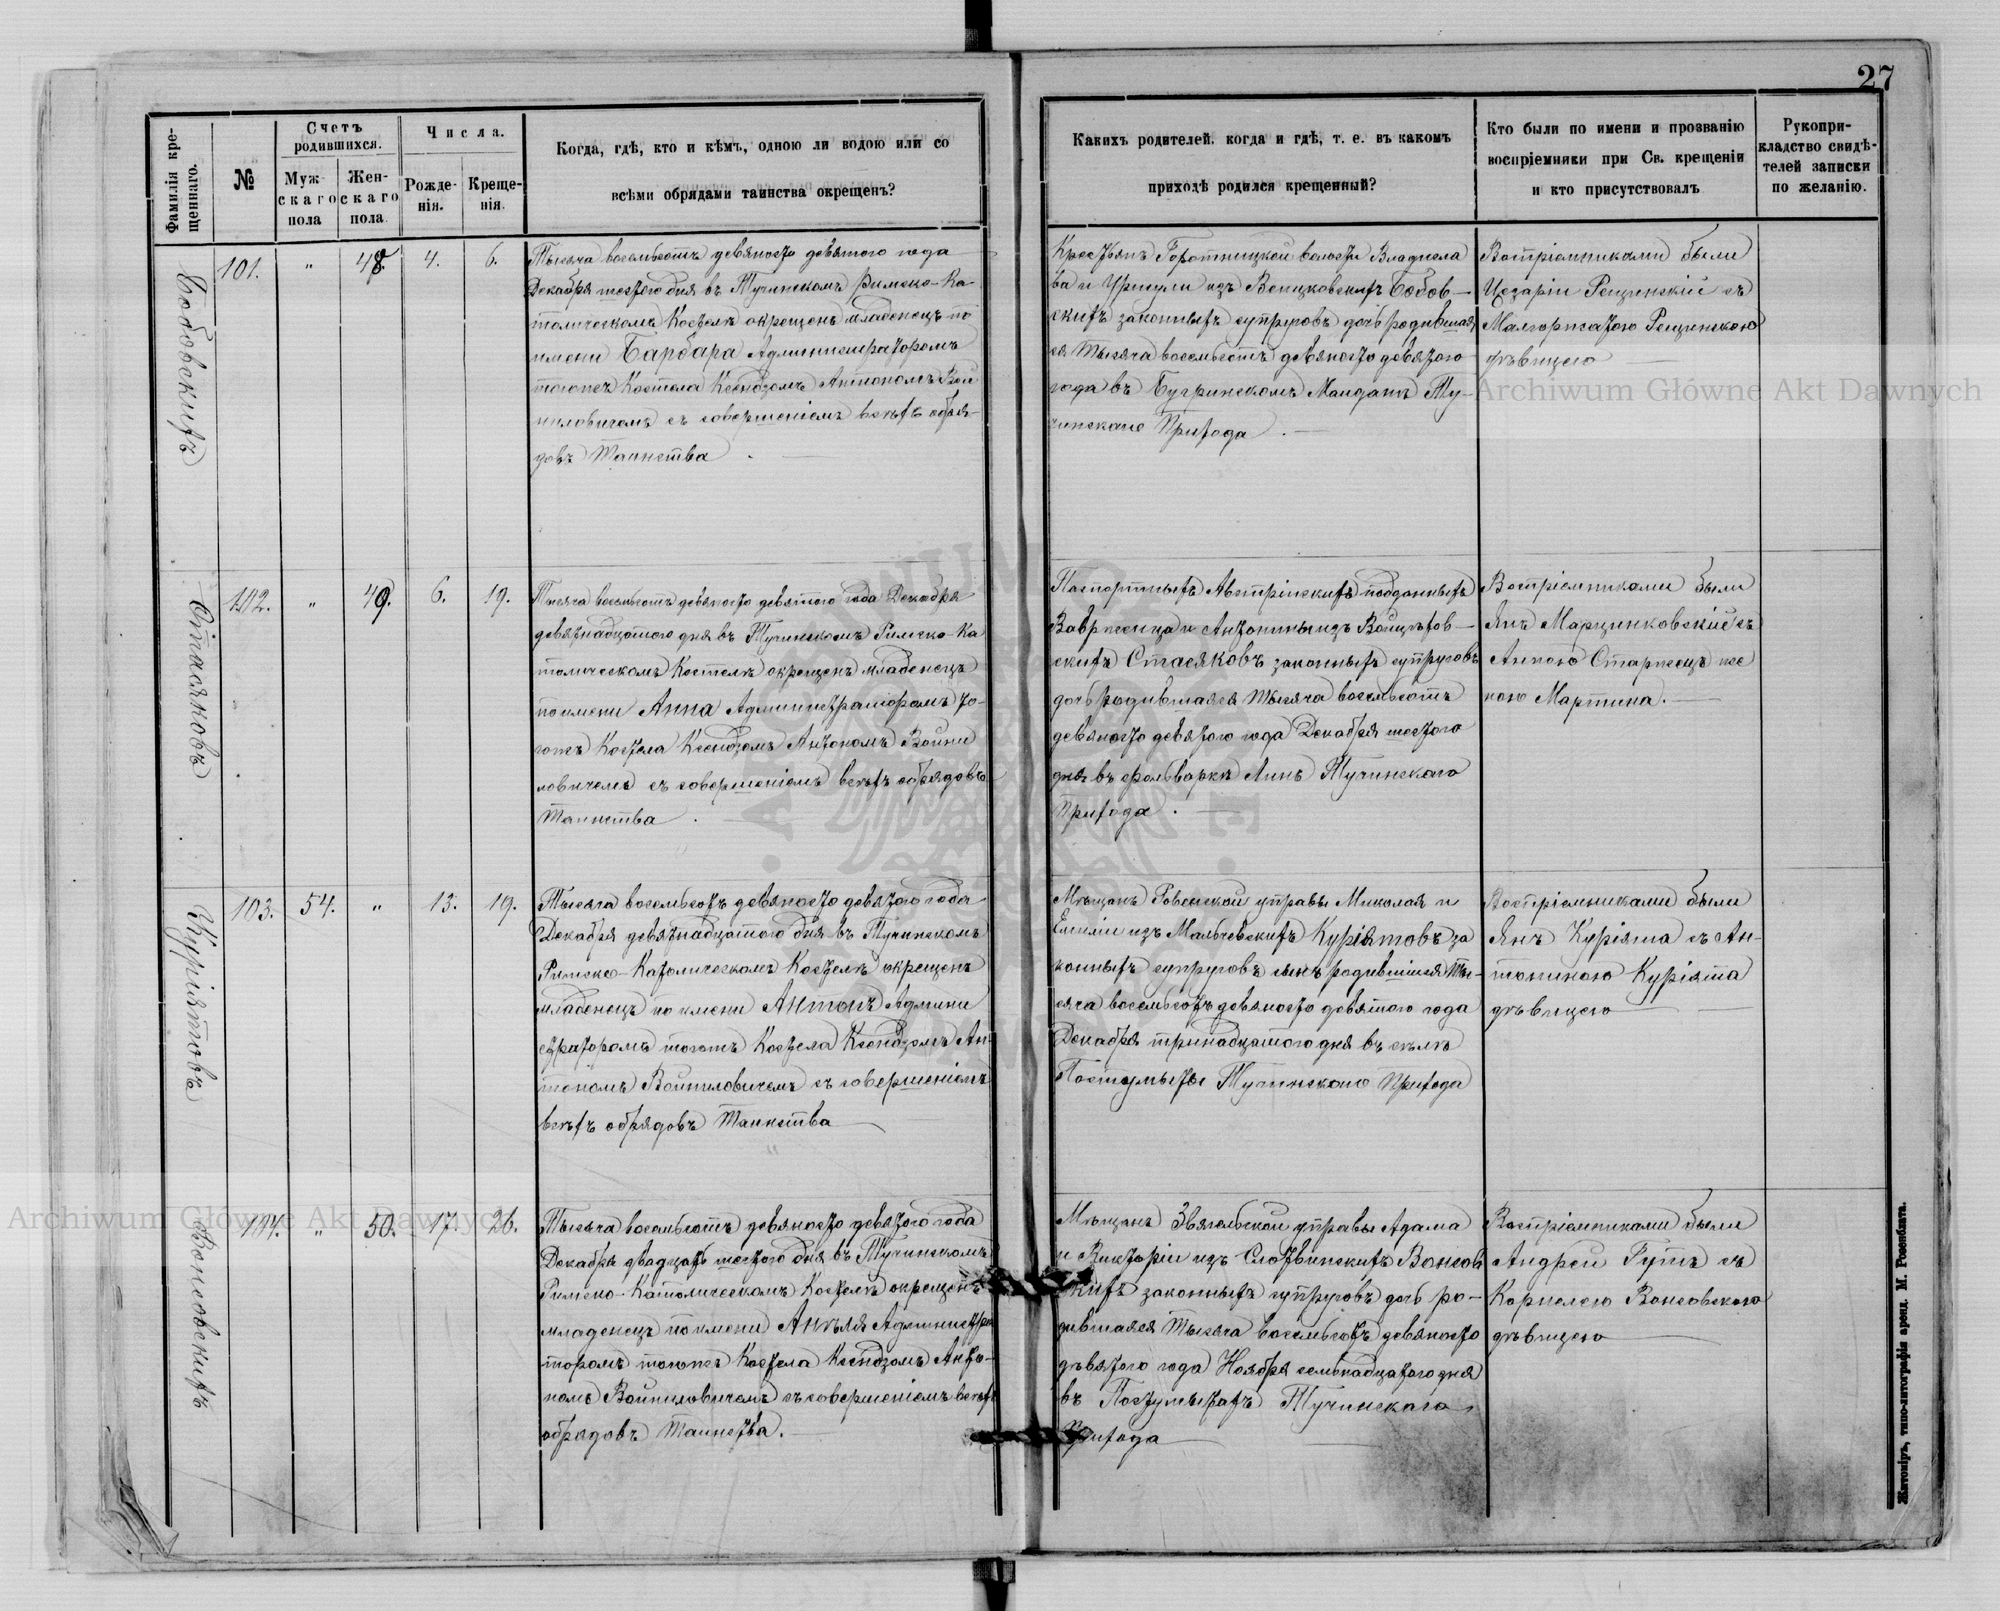 27
Фамилія кре-
щеннаго.
№
Счетъ
родившихся.
Муж-
скаго
пола
Жен-
скаго
пола.
Числа.
Рожде-
нія.
Креще-
нія.
Когда, гдѣ, кто и кѣмъ, одною ли водою или со
всѣми обрядами таинства окрещенъ?
Какихъ родителей, когда и гдѣ, т. е. въ какомъ
приходѣ родился крещенный?
Кто были по имени и прозванію
воспріемники при Св. крещеніи
и кто присутствовалъ
Рукопри-
кладство свидѣ-
телей записки
по желанію.
Бобовскихъ
101.
"
48.
4.
6.
Тысяча восемьсотъ девяносто девятого года
Декабря шестого дня въ Тучинскомъ Римско-Ка
толическомъ Костелѣ окрещенъ младенецъ по
имени Барбара Администраторомъ
тогожъ Костела Ксендзомъ Антономъ Вой
ниловичемъ съ совершеніемъ всѣхъ обря-
довъ Таинства.
Крестьянъ волости Владисла
ва и Урсули изъ Бобов-
скихъ законныхъ супруговъ дочь родившая
ся Тысяча восемьсотъ девяносто девятого
года въ Бугринскомъ Майданѣ Ту-
чинскаго Прихода.
Воспріемниками были
Цезарій Рещинскій съ
Малгоржатою Рещинскою
дѣвицею
Стасяковъ
102.
"
49.
6.
19.
Тысяча восемьсотъ девяносто девятого года Декабря
девятнадцатого дня въ Тучинскомъ Римско-Ка
толическомъ Костелѣ окрещенъ младенецъ
по имени Анна Администраторомъ то-
гожъ Костела Ксендзомъ Антономъ Войни
ловичемъ съ совершеніемъ всѣхъ обрядовъ
Таинства.
Паспортныхъ Австрійскихъ подданныхъ
Вавржинца и Антонины изъ Войцѣхов-
скихъ Стасяковъ законныхъ супруговъ
дочь родившаяся Тысяча восемьсотъ
девяносто девятого года Декабря шестого
дня въ фольваркѣ Линъ Тучинскаго
Прихода.
Воспріемниками были
Янъ Марцинковскій съ
Анною жес
ною Мартина.
Куріятовъ
103.
54.
"
13.
19.
Тысяча восемьсотъ девяносто девятого года
Декабря девятнадцатого дня въ Тучинскомъ
Римско-Католическомъ Костелѣ окрещенъ
младенецъ по имени Антонъ Админи
страторомъ тогожъ Костела Ксендзомъ Ан-
тономъ Войниловичемъ съ совершеніемъ
всѣхъ обрядовъ Таинства
Мѣщанъ Ровенской управы Миколая и
Емиліи изъ Мальчевскихъ Куріятовъ за
конныхъ супруговъ сынъ родившійся Ты-
сяча восемьсотъ девяносто девятого года
Декабря тринадцатого дня въ селѣ
Постумыты Тучинскаго Прихода
Воспріемниками были
Янъ Куріята съ Ан-
тониною Куріята
дѣвицею
Вонсовскихъ
104.
"
50.
17.
26.
Тысяча восемьсотъ девяносто девятого года
Декабря двадцать шестого дня въ Тучинскомъ
Римско-Католическомъ Костелѣ окрещенъ
младенецъ по имени Анѣля Администра
торомъ тогожъ Костела Ксендзомъ Анто-
номъ Войниловичемъ съ совершеніемъ всѣхъ
обрядовъ Таинства.
Мѣщанъ Звягельской управы Адама
и Викторіи изъ Слотвинскихъ Вонсов
скихъ законныхъ супруговъ дочь ро-
дившаяся Тысяча восемьсотъ девяносто
девятого года Ноября семнадцатого дня
въ Тучинскаго
Прихода
Воспріемниками были
Андрей Гутъ съ
Корнелею Вонсовскою
дѣвицею
Житомiръ, типо-литографія аренд. М. Розенблата.
Archiwum Główne Akt Dawnych
Archiwum Główne Akt Dawnych